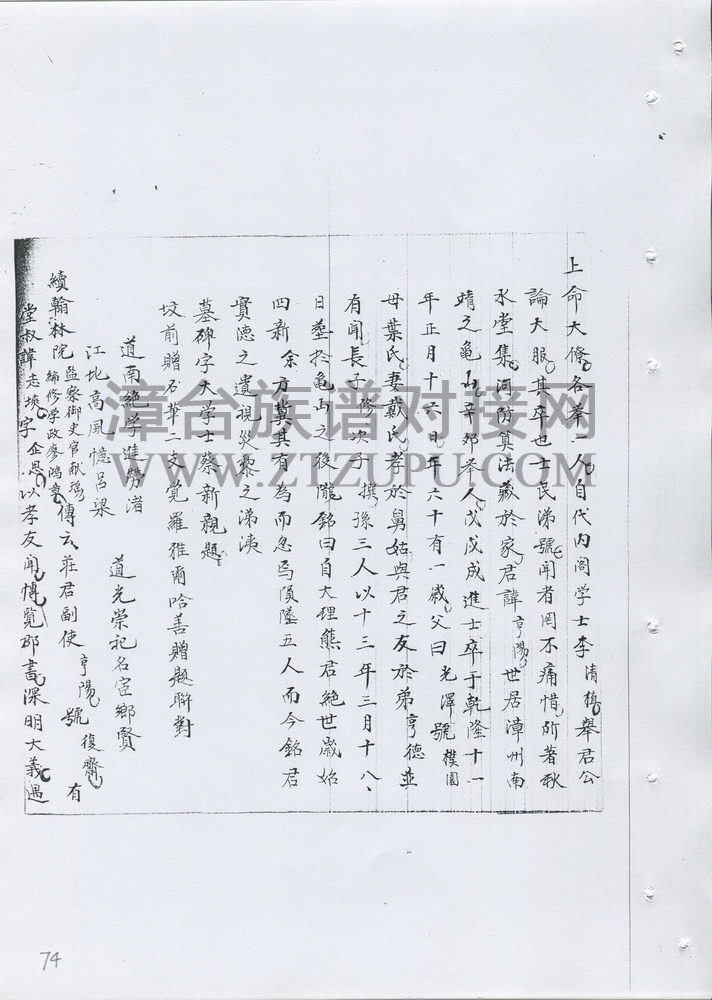 上命大僚各举一人自代内阁学士李清植舉君公
論大服其卒也士民涕號聞者罔不痛惜所著秋
水堂集河防算法藏於家君諱亨陽世居漳州南
靖之龜山辛卯举人戊戌成進士卒于乾隆十一
年正月十六日年六十有一歲父曰光澤號樸園
母葉氏妻戴氏孝於舅姑與君之友於弟亨德並
有聞長子修次子撰孫三人以十三年三月十八
日塟於龜山之後隴銘曰自大理熊君絶世歲始
四新余方冀其有為而忽焉湏墜五人而今銘君
實德之遺視災黎之涕洟
墓碑字大学士蔡新親題
坟前贈石華二支覚羅雅爾哈善贈題聯對
道南絶学進勞渚
江北高風憶呂梁
道光崇祀名宦鄉賢
續翰林院監察御史官献瑶編修学政廖鴻章傳云莊君副使亨陽號復齋有
堂叔諱志填字企恩以孝友聞博覧群書深明大義遇
漳台族谱对接网
WWW.ZTZUPU.COM
74